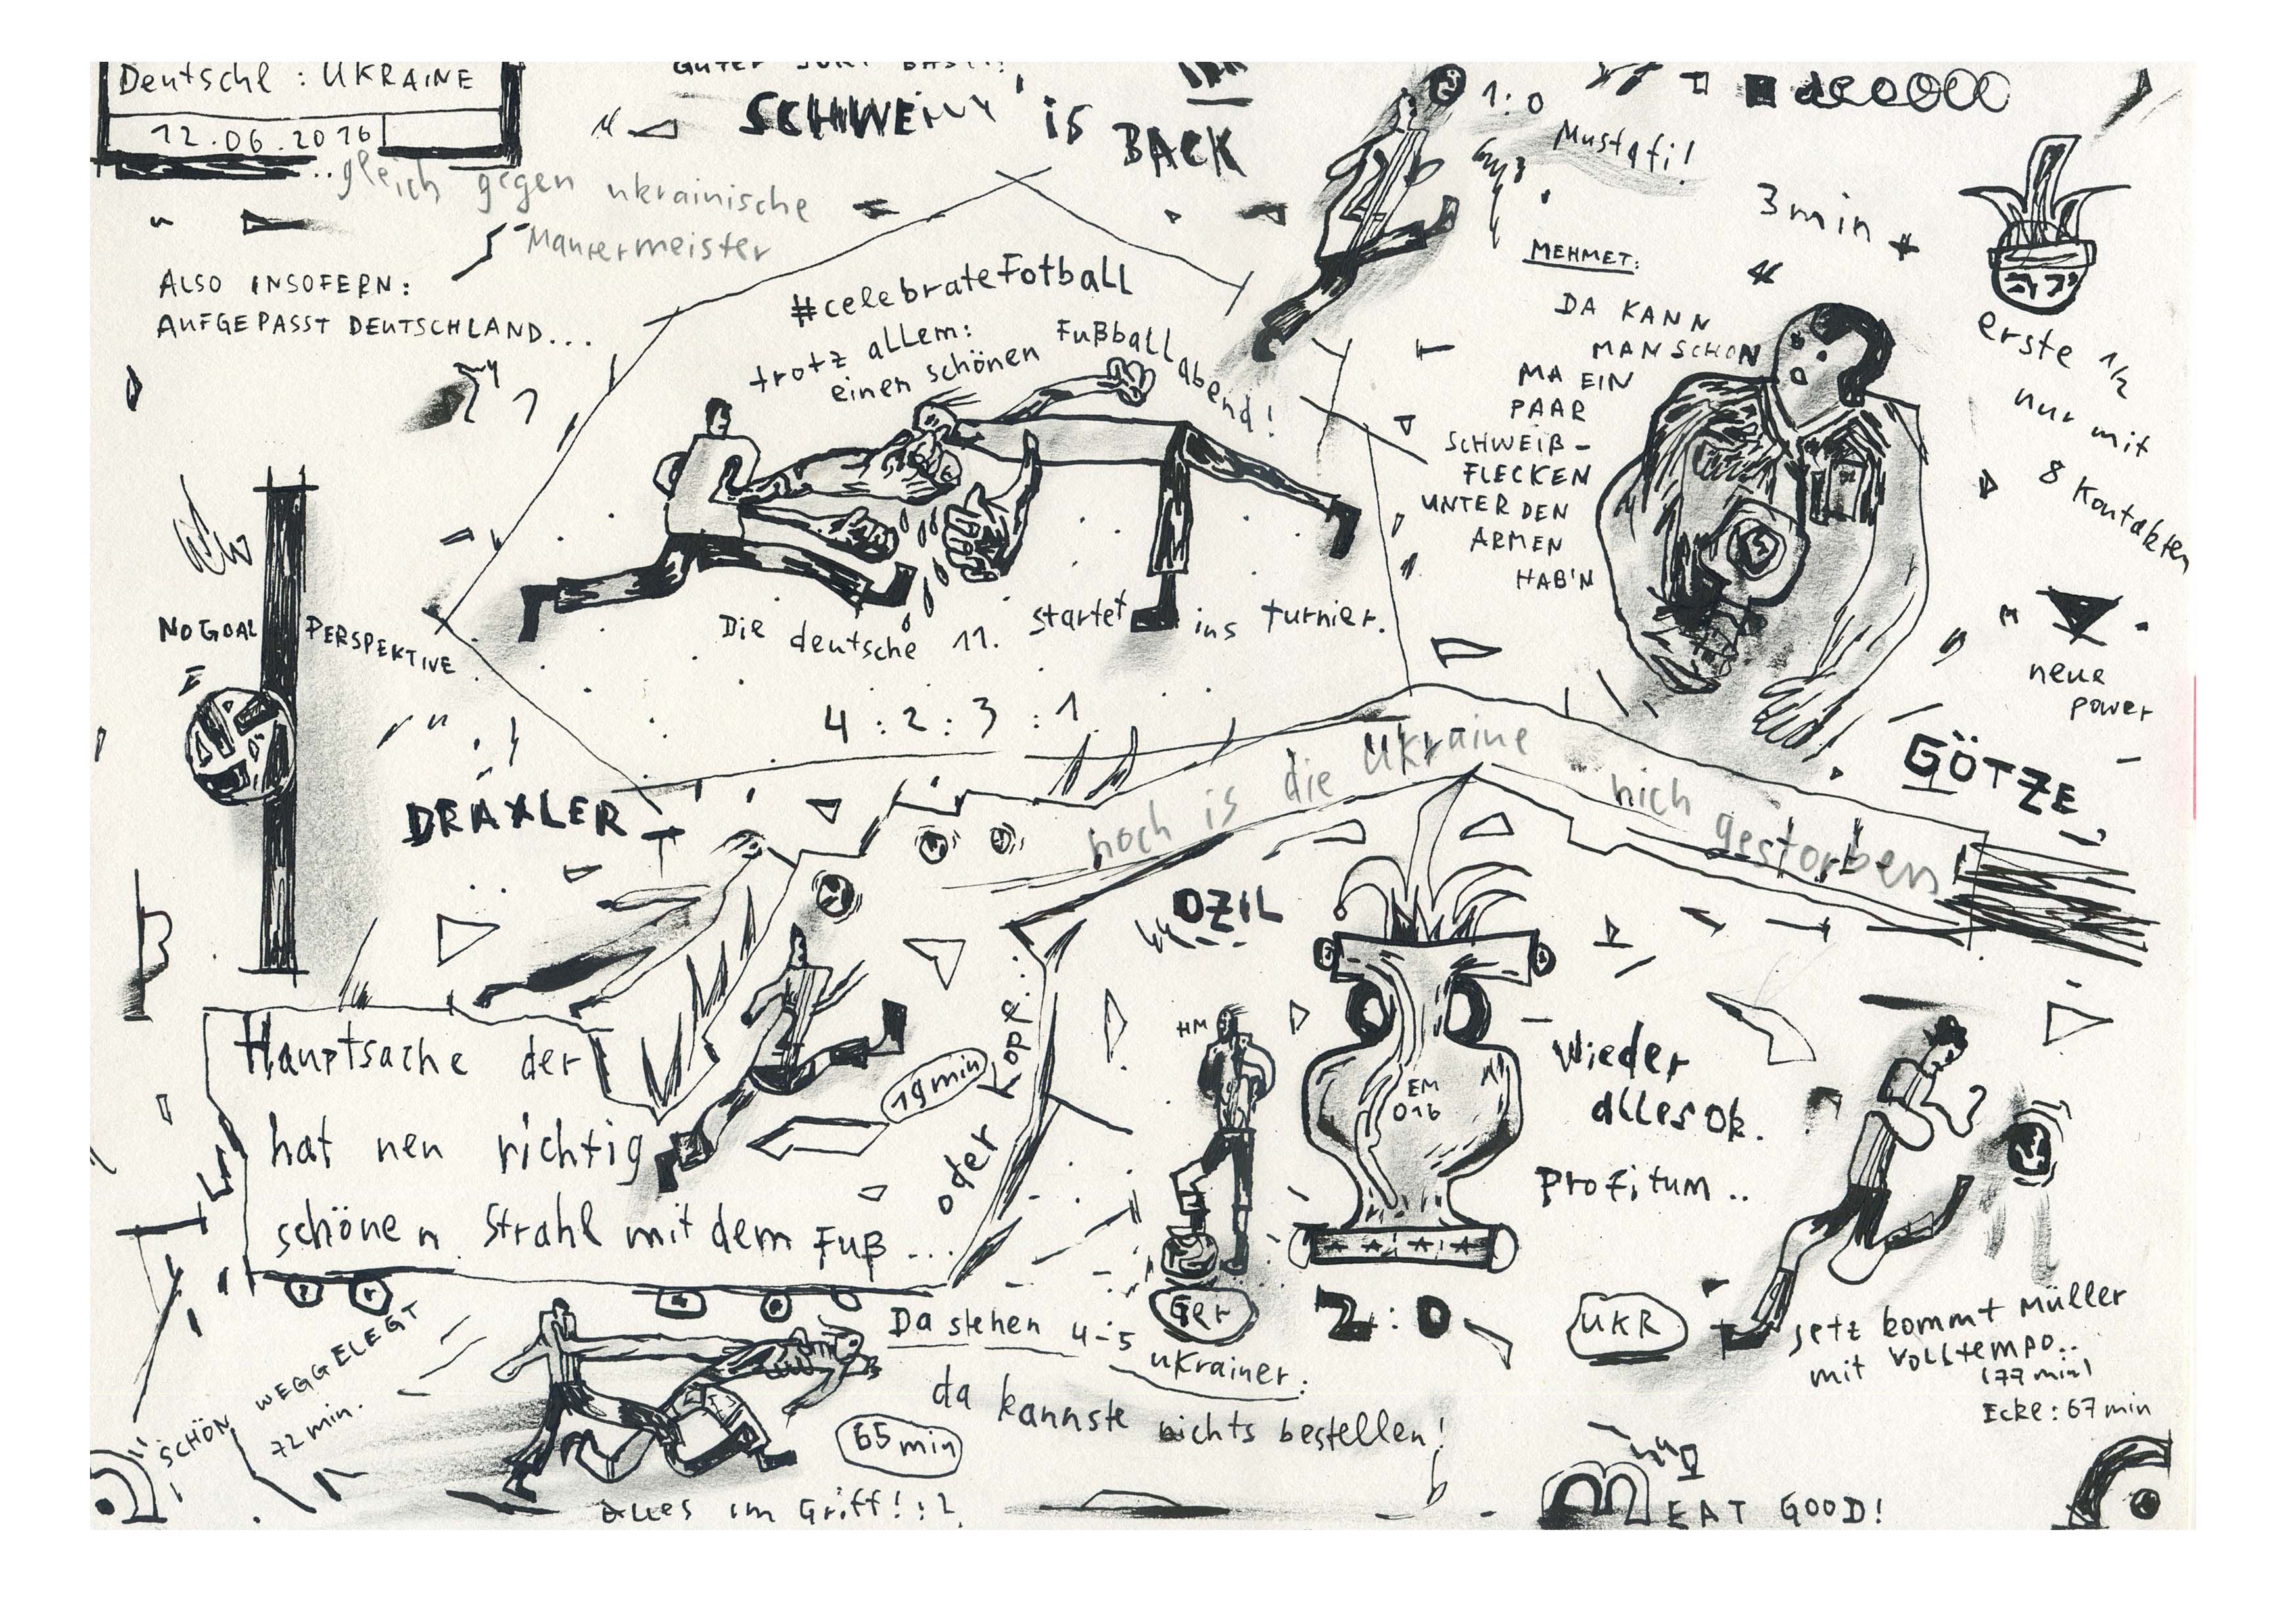 Deutschl : UKRAINE
12.06.2016
GUTER
SCHWEINY is
BACK
1:0
Mustafi!
..gleich gegen ukrainische
Maurermeister
ALSO INSOFERN:
AUFGEPASST DEUTSCHLAND...
#celebrateFotball
trotz allem:
einen schönen Fußballabend!
Die deutsche 11. startet ins turnier.
4:2:3:1
MEHMET:
DA KANN
MAN SCHON
MA EIN
PAAR
SCHWEIß-
FLECKEN
UNTER DEN
ARMEN
HAB'N
3min +
erste 1/2
nur mit
8 Kontakten
neue
power
GÖTZE
NO GOAL
PERSPEKTIVE
DRAXLER
noch is die Ukraine nich gestorben
Hauptsache der
hat nen richtig
schönen Strahl mit dem Fuß...
oder Kopf..
19min
ÖZIL
HM
EM
016
Wieder
alles ok.
Profitum..
Ger
2:0
UKR
jetz kommt Müller
mit Volltempo..
(77 min)
Ecke: 67min
SCHÖN WEGGELEGT
72 min.
Da stehen 4-5
ukrainer:
da kannste nichts bestellen!
65min
alles im Griff!
BEAT GOOD!